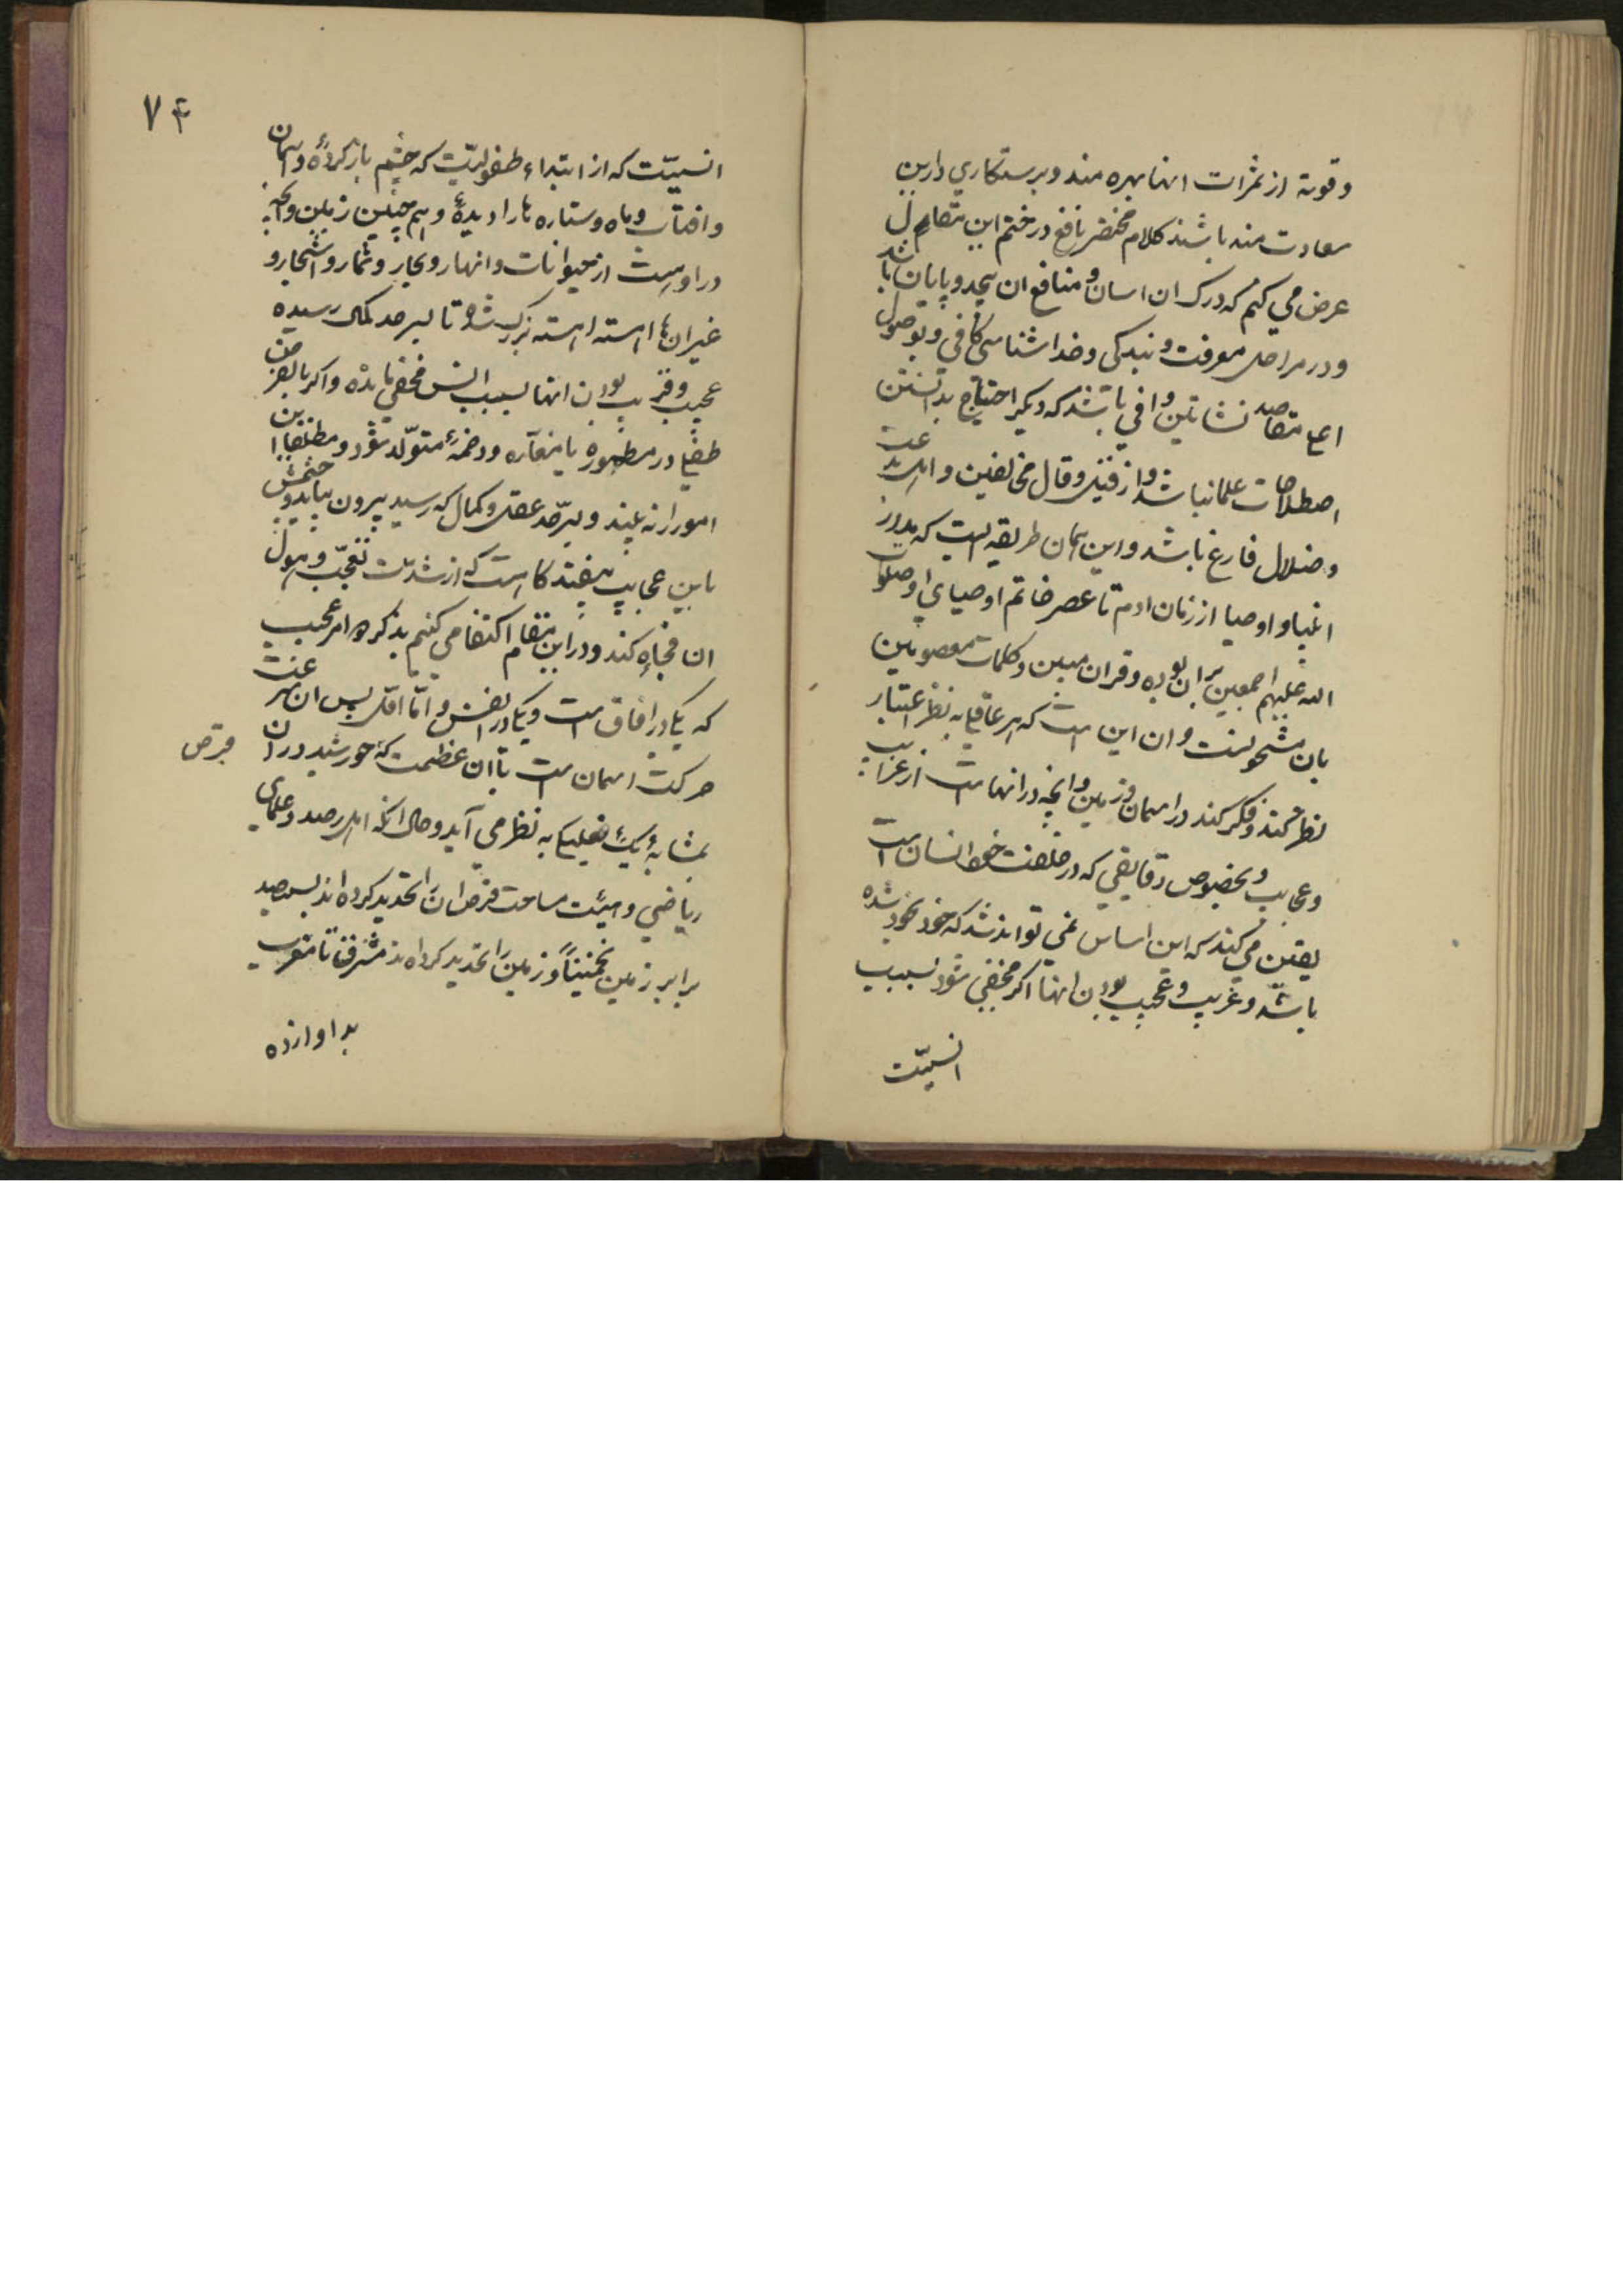 وقوة از ثمرات انها بهره مند وبرستكاري دارين
سعادت مند باشند كلام مختصر نافع در ختم اين مقام
عرض مي كنم كه درك ان اسان و منافع ان بيحد و پايان باشد
و در مراحل معرفت و بندكي و خداشناسي كافي و بوصول
مقاصد نشاتين وافي باشد كه ديكر احتياج بدانستن
اصطلاحات علما نباشد و از قيل و قال مخالفين و اهل بدعت
و ضلال فارغ باشد و اين همان طريقه ايست كه مدار
انبيا و اوصيا از زمان ادم تا عصر خاتم اوصياي او صلوات
الله عليهم اجمعين بران بوده و قران مبين و كلمات معصومين
بان مشحونست و ان اين است كه هر عاقلي به نظر اعتبار
نظر كند و فكر كند در اسمان و زمين و انچه در انها است از غرايب
و عجايب و بخصوص دقايقي كه در خلقت خود انسان است
يقين مي كند كه اين اساس نمي تواند شد كه خود بخود شده
باشد و غريب و عجيب بودن انها اكر مخفي شود بسبب
انسيّت
٧٤
انسيّت كه از ابتداء طفوليّت كه چشم باز كرده و اسمان
و افتاب و ماه و ستاره ها را ديده و هم چنين زمين و انچه
در اوست از حيوانات و انهار و بحار و ثمار و اشجار و
غير ان ها اهسته اهسته بزرك شده تا بسر حد كمال رسيده
عجيب و غريب بودن انها بسبب انس مخفي مانده و اكر بالفرض
طفلي در مطموره يا مغاره و دخمۀ متولّد شود و مطلقا اين
امور را نه بيند و بسر حّد عقل و كمال كه رسيد بيرون بيايد و چشمش
باين عجايب بيفتد كاهست كه از شدت تعجّب و هول
ان فجاه كند و در اين مقام اكتفا مي كنم بذكر دو امر عجيب
كه يكي در افاق است و يكي در انفس و امّا اوّل پس ان سرعت
حركت اسمان است با ان عظمت كه خورشيد در ان
بمثابۀ يك به نظر مي آيد و حال انكه اهل رصد و علماي
قرص
رياضي و هيئت مساحت قرص ان را تحديد كرده اند بسيصد
برابر زمين تخمينًا و زمين را تحديد كرده اند از مشرق تا مغرب
بدوازده